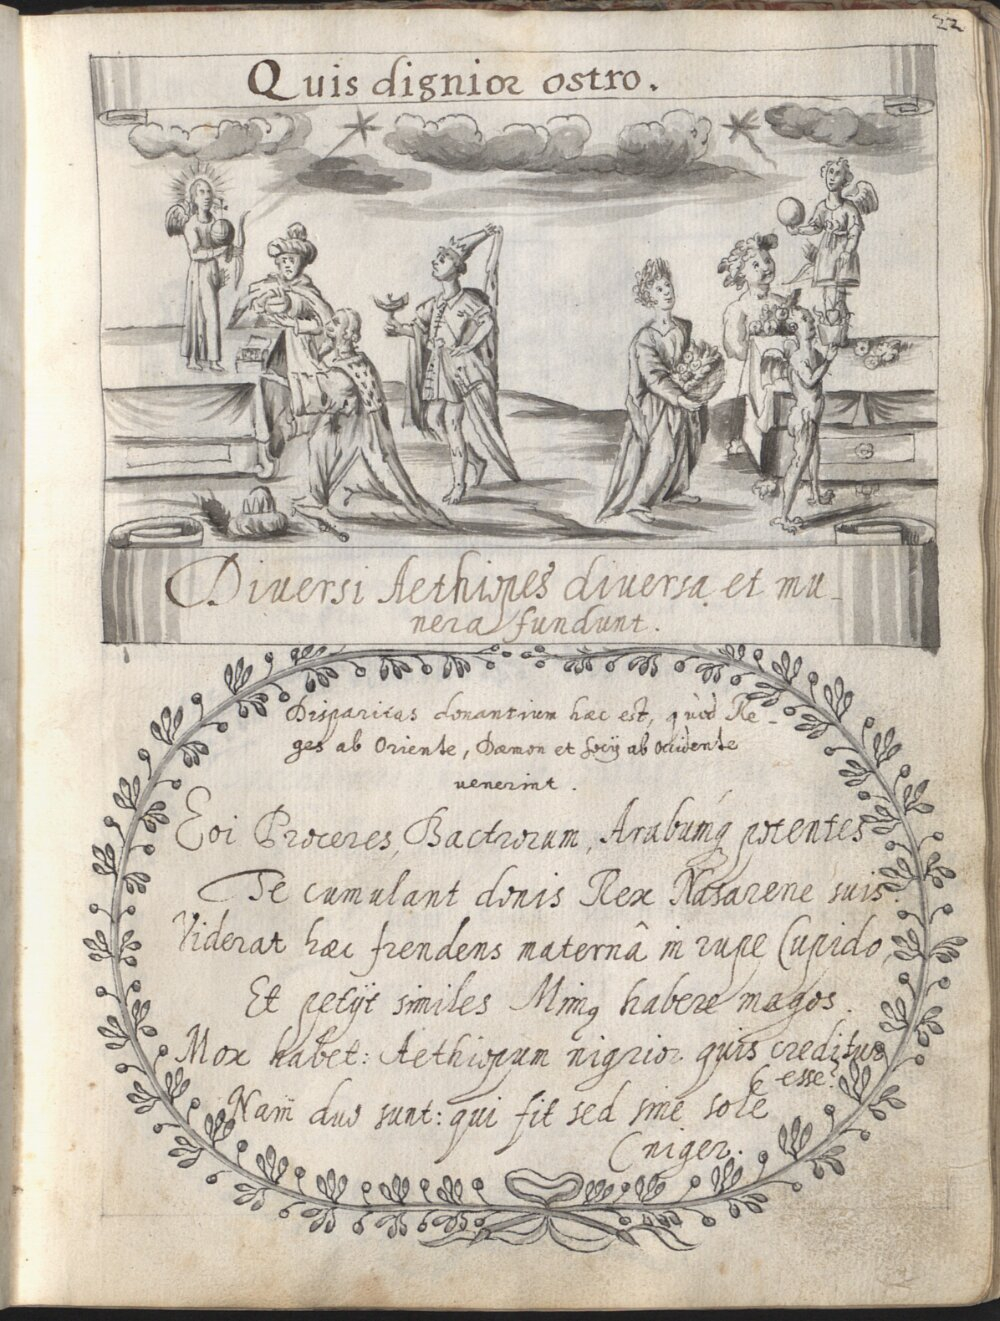 22
Quis dignior ostro.
Diuersi Aethiopes diuersa et mu-
nera fundunt.
Disparitas donantium hæc est, quòd Re-
ges ab Oriente, Dæmon et socij ab occidente
uenerint.
Eoi Proceres, Bactrorum, Arabumq potentes
Te cumulant donis Rex Nasarene suis.
Viderat hæc frendens maternâ in rupe Cupido,
Et petijt similes Mimq habere magos.
Mox habet: Aethiopum nigrior quis creditur
esse?
Nam duo sunt: qui fit sed sine sole
niger.